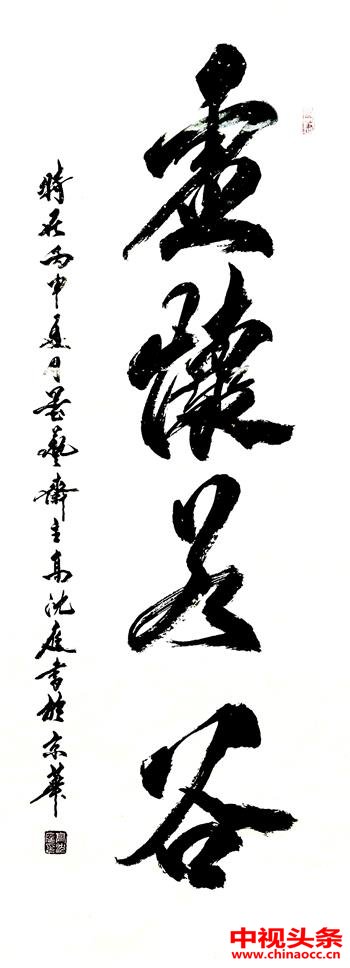 虚懷若谷
時在丙申夏月墨藝齋主高沈庭書於京華
中视头条
www.chinaocc.cn